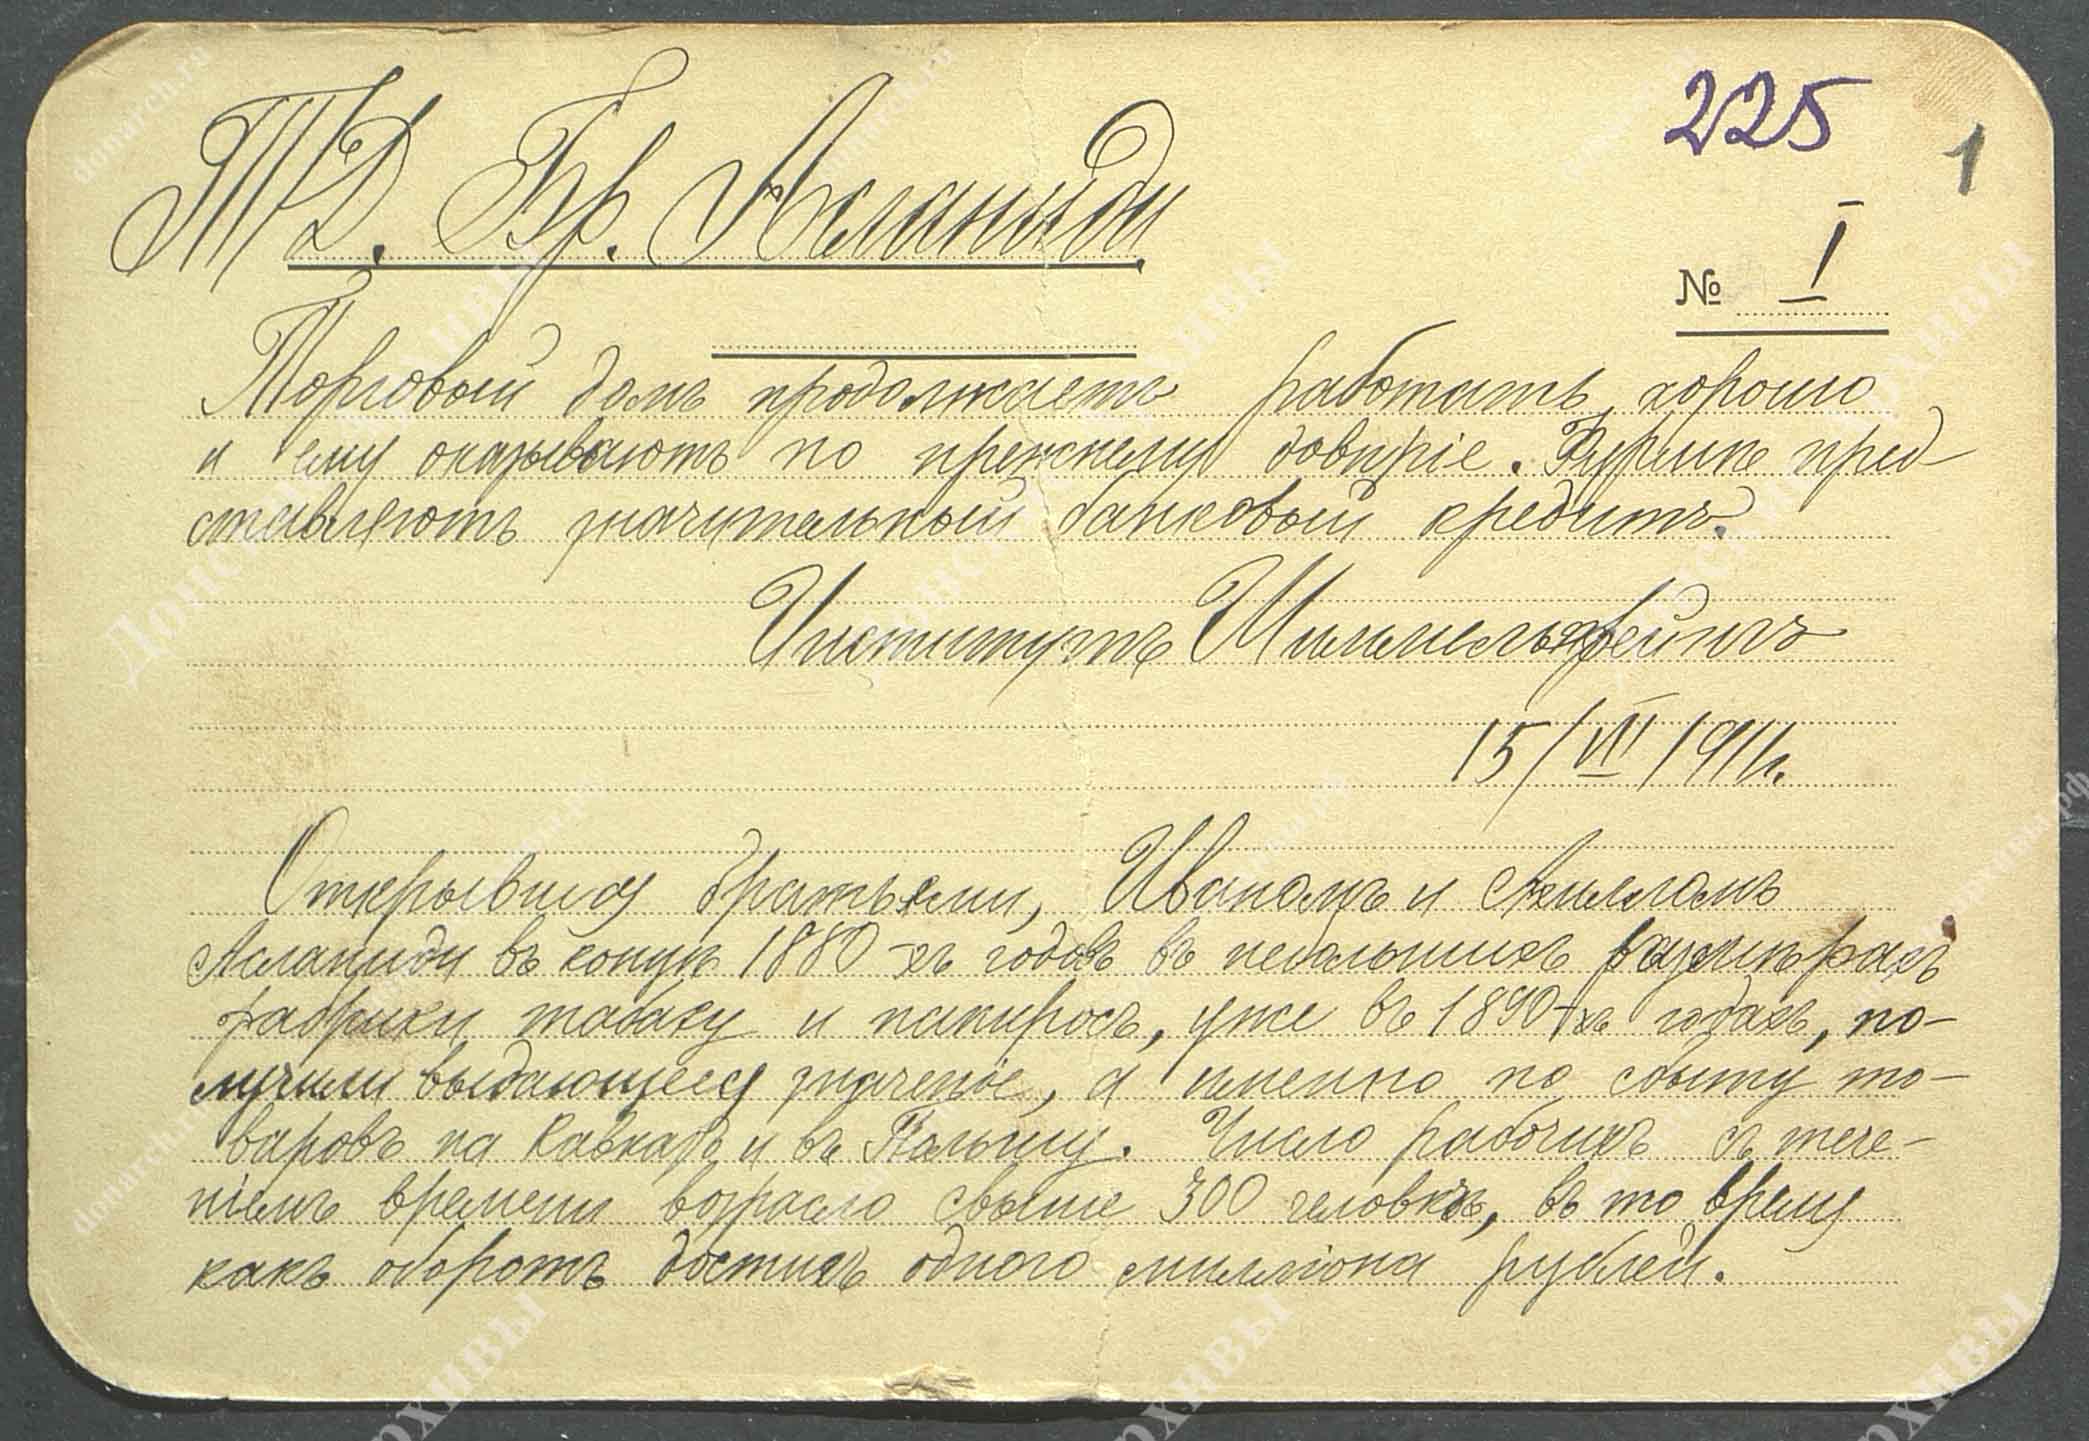 225
1
Т/Д. Бр. Асланиди
№ I
Торговый домъ продолжаетъ работать хорошо
и ему оказываютъ по прежнему довѣріе. Фирмѣ пред-
ставляютъ значительный банковый кредитъ.
Институтъ Шиммельпфейнгъ
15/VII 1911г.
Открывшія братьями, Иваномъ и Ахилломъ
Асланиди въ концѣ 1880-хъ годовъ въ небольшихъ размѣрахъ
фабрики табаку и папиросъ, уже въ 1890-хъ годахъ, по-
лучили выдающееся значеніе, а именно по сбыту то-
варовъ на Кавказъ и въ Польшу. Число рабочихъ съ тече-
ніемъ времени возрасло свыше 300 человѣкъ, въ то время
какъ оборотъ достигъ одного милліона рублей.